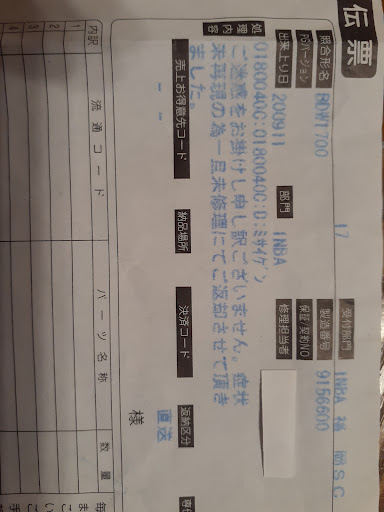 伝票
照合形名 BDW1700 17 受付部門 INBA 福岡SC
PGバージョン 製造番号 9156600
出来上り日 200911 部門 INBA 保証/契約NO
0180040C:0180040C:D:ミサイゲン 修理担当者
処理内容 ご迷惑をお掛けし申し訳ございません。症状
未再現の為一旦未修理にてご返却させて頂き
ました。
売上お得意先コード 納品場所 決済コード 返納区分
- - 直送 様
内訳 流通コード パーツ名称 数量
1
2
3
4